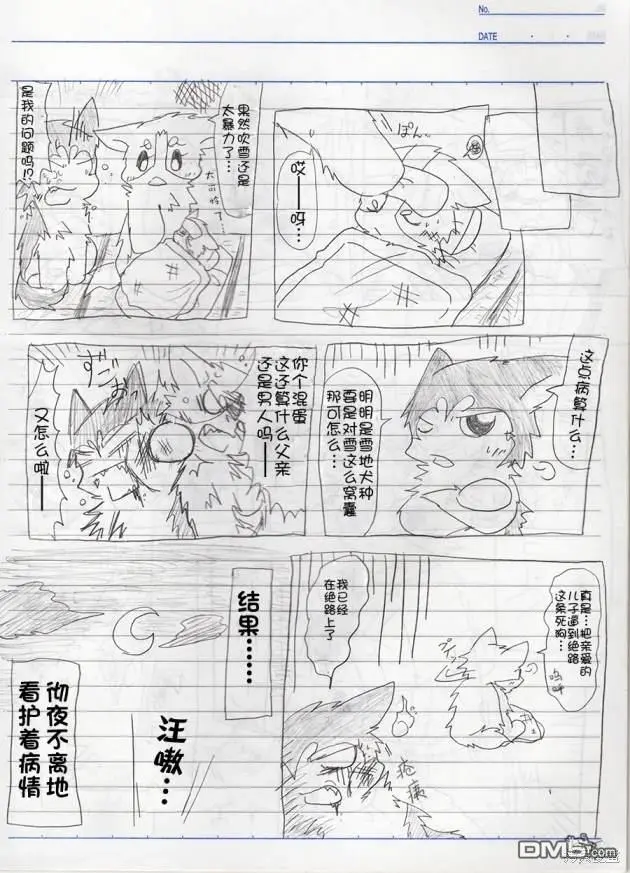 No.
DATE
ぽん
哎——呀…
果然吹雪还是
太暴力了…
太可怜了…
是我的问题吗!?
这点病算什么…
明明是雪地犬种
真是对雪这么窝囊
那可怎么…
你个混蛋
这还算什么父亲
还是男人吗——
又怎么啦——
真是…把亲爱的
儿子逼到绝路
这条死狗…
呜呼
我已经
在绝路上了
疮痍
结果……
汪嗷…
彻夜不离地
看护着病情
DM5.com